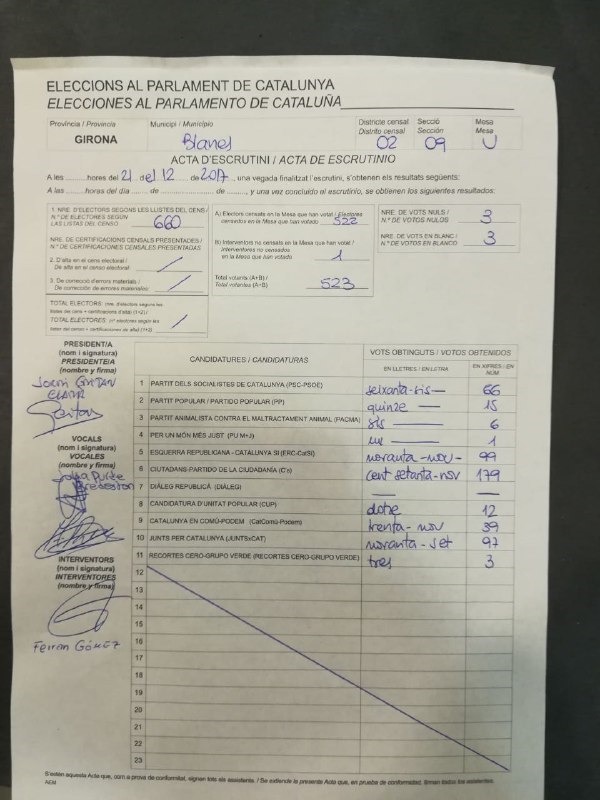 ELECCIONS AL PARLAMENT DE CATALUNYA
ELECCIONES AL PARLAMENTO DE CATALUÑA
Província / Provincia
GIRONA
Municipi / Municipio
Blanes
Districte censal
Distrito censal
02
Secció
Sección
09
Mesa
Mesa
U
ACTA D'ESCRUTINI / ACTA DE ESCRUTINIO
A les ..........hores del 21 del 12 de 2017, una vegada finalitzat l'escrutini, s'obtenen els resultats següents:
A las ..........horas del día ........ de .................... de .........., y una vez concluido el escrutinio, se obtienen los siguientes resultados:
1. NRE. D'ELECTORS SEGONS LES LLISTES DEL CENS /
N.º DE ELECTORES SEGÚN
LAS LISTAS DEL CENSO 660
NRE. DE CERTIFICACIONS CENSALS PRESENTADES /
N.º DE CERTIFICACIONES CENSALES PRESENTADAS
2. D'alta en el cens electoral /
De alta en el censo electoral: /
3. De correcció d'errors materials /
De corrección de errores materiales: /
TOTAL ELECTORS: (nre. d'electors segons les
llistes del cens + certificacions d'alta) (1+2) /
TOTAL ELECTORES: (nº electores según las
listas del censo + certificaciones de alta) (1+2) /
A) Electors censats en la Mesa que han votat / Electores
censados en la Mesa que han votado 522
B) Interventors no censats en la Mesa que han votat /
Interventores no censados
en la Mesa que han votado 1
Total votants (A+B) /
Total votantes (A+B) 523
NRE. DE VOTS NULS /
N.º DE VOTOS NULOS 3
NRE. DE VOTS EN BLANC /
N.º DE VOTOS EN BLANCO 3
PRESIDENT/A
(nom i signatura)
PRESIDENTE/A
(nombre y firma)
VOCALS
(nom i signatura)
VOCALES
(nombre y firma)
INTERVENTORS
(nom i signatura)
INTERVENTORES
(nombre y firma)
Ferran Gómez
CANDIDATURES / CANDIDATURAS
VOTS OBTINGUTS / VOTOS OBTENIDOS
EN LLETRES / EN LETRA
EN XIFRES / EN NÚM
1 PARTIT DELS SOCIALISTES DE CATALUNYA (PSC-PSOE) seixanta-sis 66
2 PARTIT POPULAR / PARTIDO POPULAR (PP) quinze 15
3 PARTIT ANIMALISTA CONTRA EL MALTRACTAMENT ANIMAL (PACMA) sis 6
4 PER UN MÓN MÉS JUST (PUM+J) un 1
5 ESQUERRA REPUBLICANA - CATALUNYA SÍ (ERC-CatSí) noranta-nou 99
6 CIUTADANS-PARTIDO DE LA CIUDADANÍA (C's) cent setanta-nou 179
7 DIÀLEG REPUBLICÀ (DIÀLEG) — —
8 CANDIDATURA D'UNITAT POPULAR (CUP) dotze 12
9 CATALUNYA EN COMÚ-PODEM (CatComú-Podem) trenta-nou 39
10 JUNTS PER CATALUNYA (JUNTSxCAT) noranta-set 97
11 RECORTES CERO-GRUPO VERDE (RECORTES CERO-GRUPO VERDE) tres 3
12
13
14
15
16
17
18
19
20
21
22
23
S'estén aquesta Acta que, com a prova de conformitat, signen tots els assistents. / Se extiende la presente Acta que, en prueba de conformidad, firman todos los asistentes.